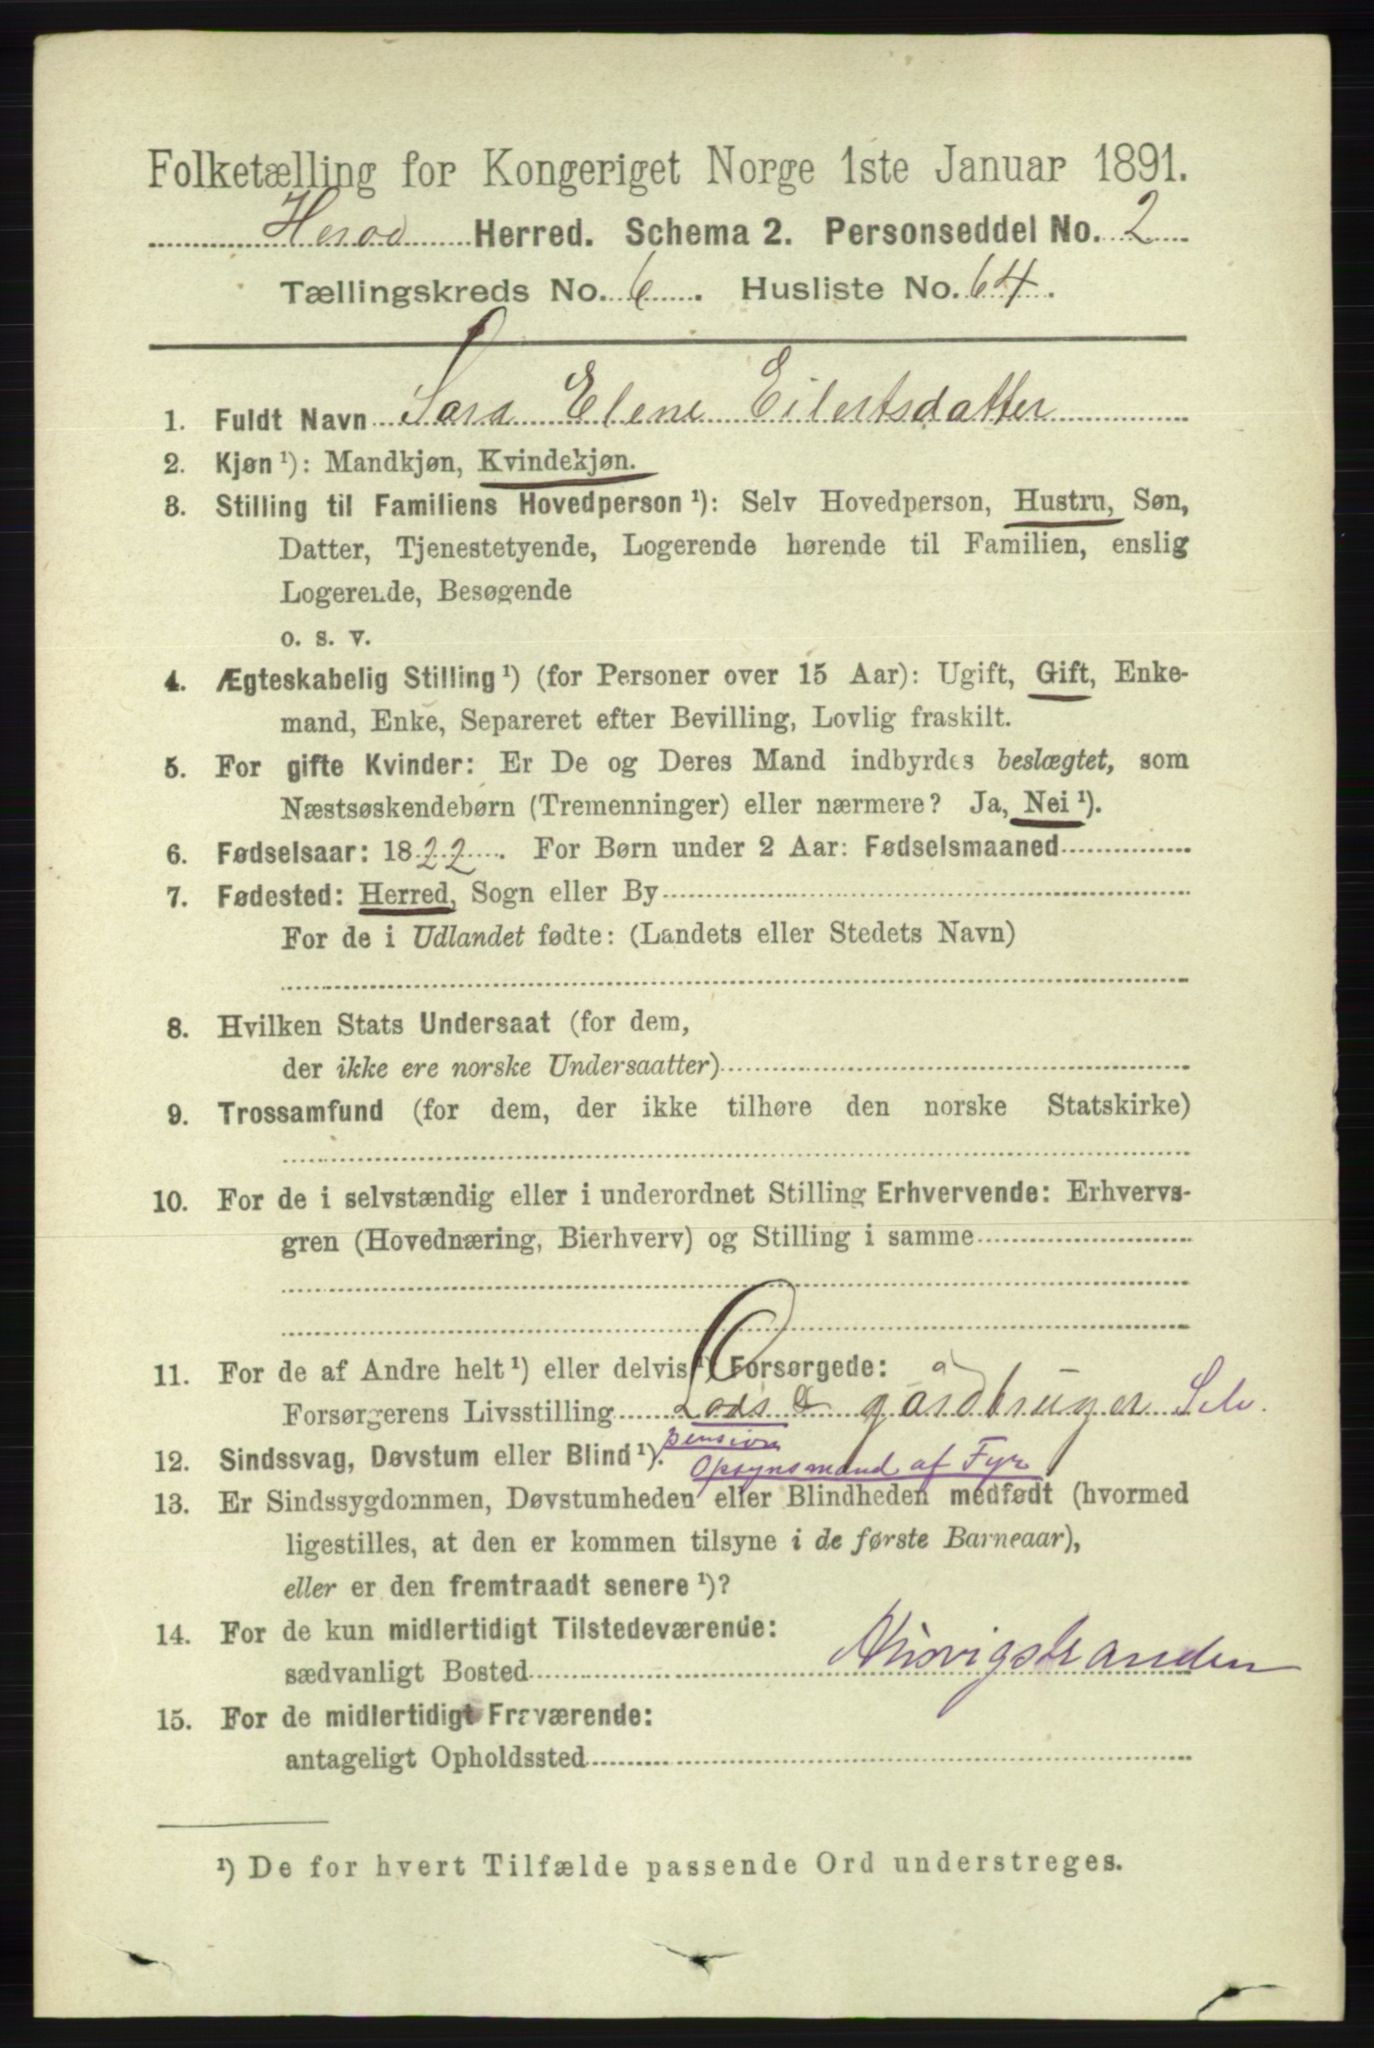 Folketælling for Kongeriget Norge 1ste Januar 1891.
Herød Herred. Schema 2. Personseddel No. 2
Tællingskreds No. 6. Husliste No. 64.
1. Fuldt Navn Sara Elene Eilertsdatter
2. Kjøn ¹): Mandkjøn, Kvindekjøn.
3. Stilling til Familiens Hovedperson ¹): Selv Hovedperson, Hustru, Søn,
Datter, Tjenestetyende, Logerende hørende til Familien, enslig
Logerende, Besøgende
o. s. v.
4. Ægteskabelig Stilling ¹) (for Personer over 15 Aar): Ugift, Gift, Enke-
mand, Enke, Separeret efter Bevilling, Lovlig fraskilt.
5. For gifte Kvinder: Er De og Deres Mand indbyrdes beslægtet, som
Næstsøskendebørn (Tremenninger) eller nærmere? Ja, Nei ¹).
6. Fødselsaar: 1822. For Børn under 2 Aar: Fødselsmaaned
7. Fødested: Herred, Sogn eller By
For de i Udlandet fødte: (Landets eller Stedets Navn)
8. Hvilken Stats Undersaat (for dem,
der ikke ere norske Undersaatter)
9. Trossamfund (for dem, der ikke tilhøre den norske Statskirke)
10. For de i selvstændig eller i underordnet Stilling Erhvervende: Erhvervs-
gren (Hovednæring, Bierhverv) og Stilling i samme
11. For de af Andre helt ¹) eller delvis ¹) Forsørgede:
Forsørgerens Livsstilling Lods & gårdbruger Selv.
pension
12. Sindssvag, Døvstum eller Blind ¹). Opsynsmand af Fyr
13. Er Sindssygdommen, Døvstumheden eller Blindheden medfødt (hvormed
ligestilles, at den er kommen tilsyne i de første Barneaar),
eller er den fremtraadt senere ¹)?
14. For de kun midlertidigt Tilstedeværende:
sædvanligt Bosted
15. For de midlertidigt Fraværende:
antageligt Opholdssted
¹) De for hvert Tilfælde passende Ord understreges.